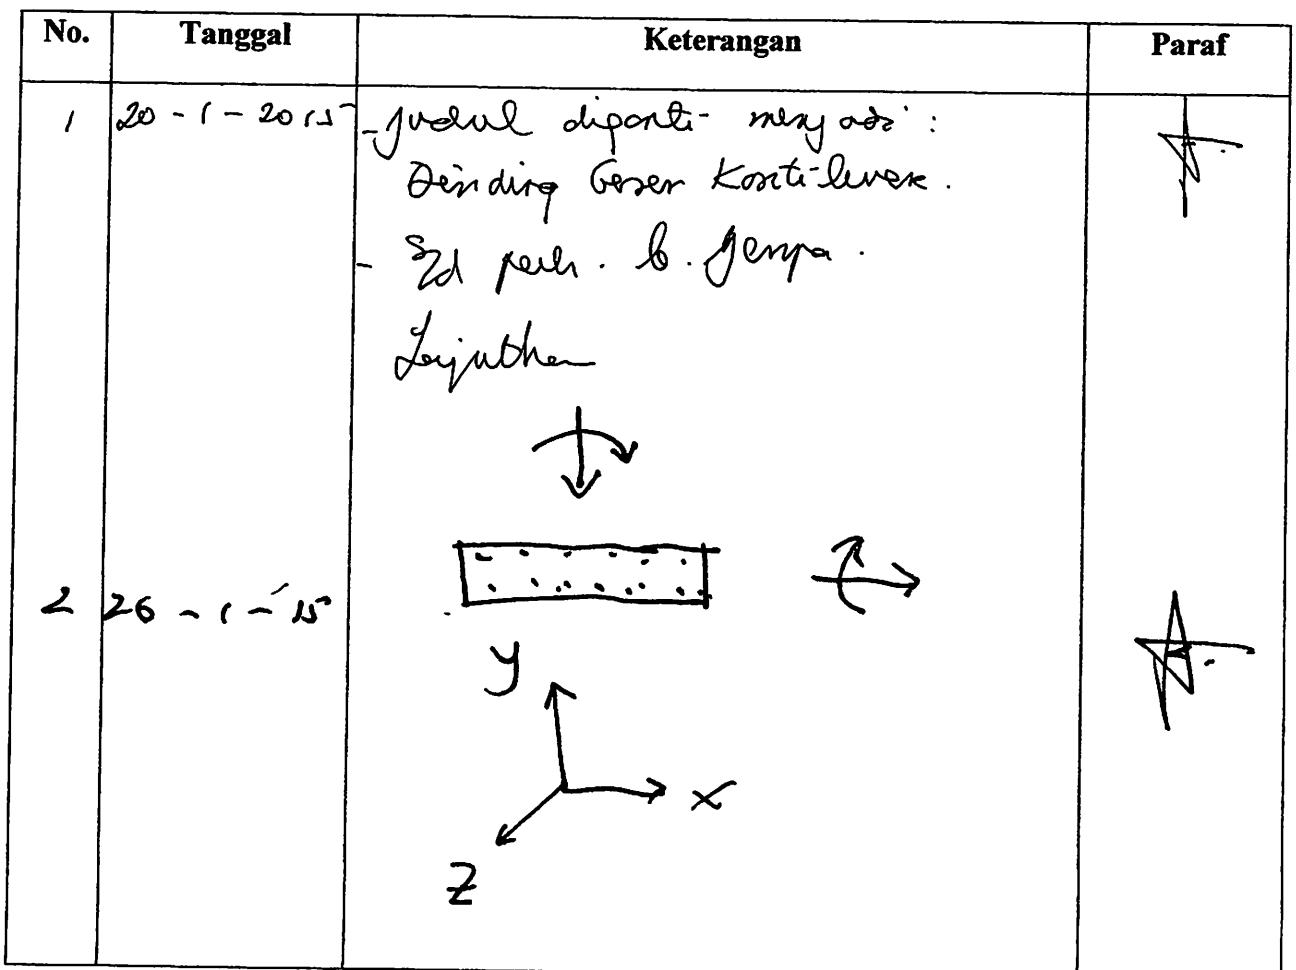 No. Tanggal Keterangan Paraf
1 20 - 1 - 2015 - judul diganti menjadi :
Dinding Geser Kantilever.
- S/d perh. b. gempa.
Lanjutkan
2 26 - 1 - 15
y
x
z